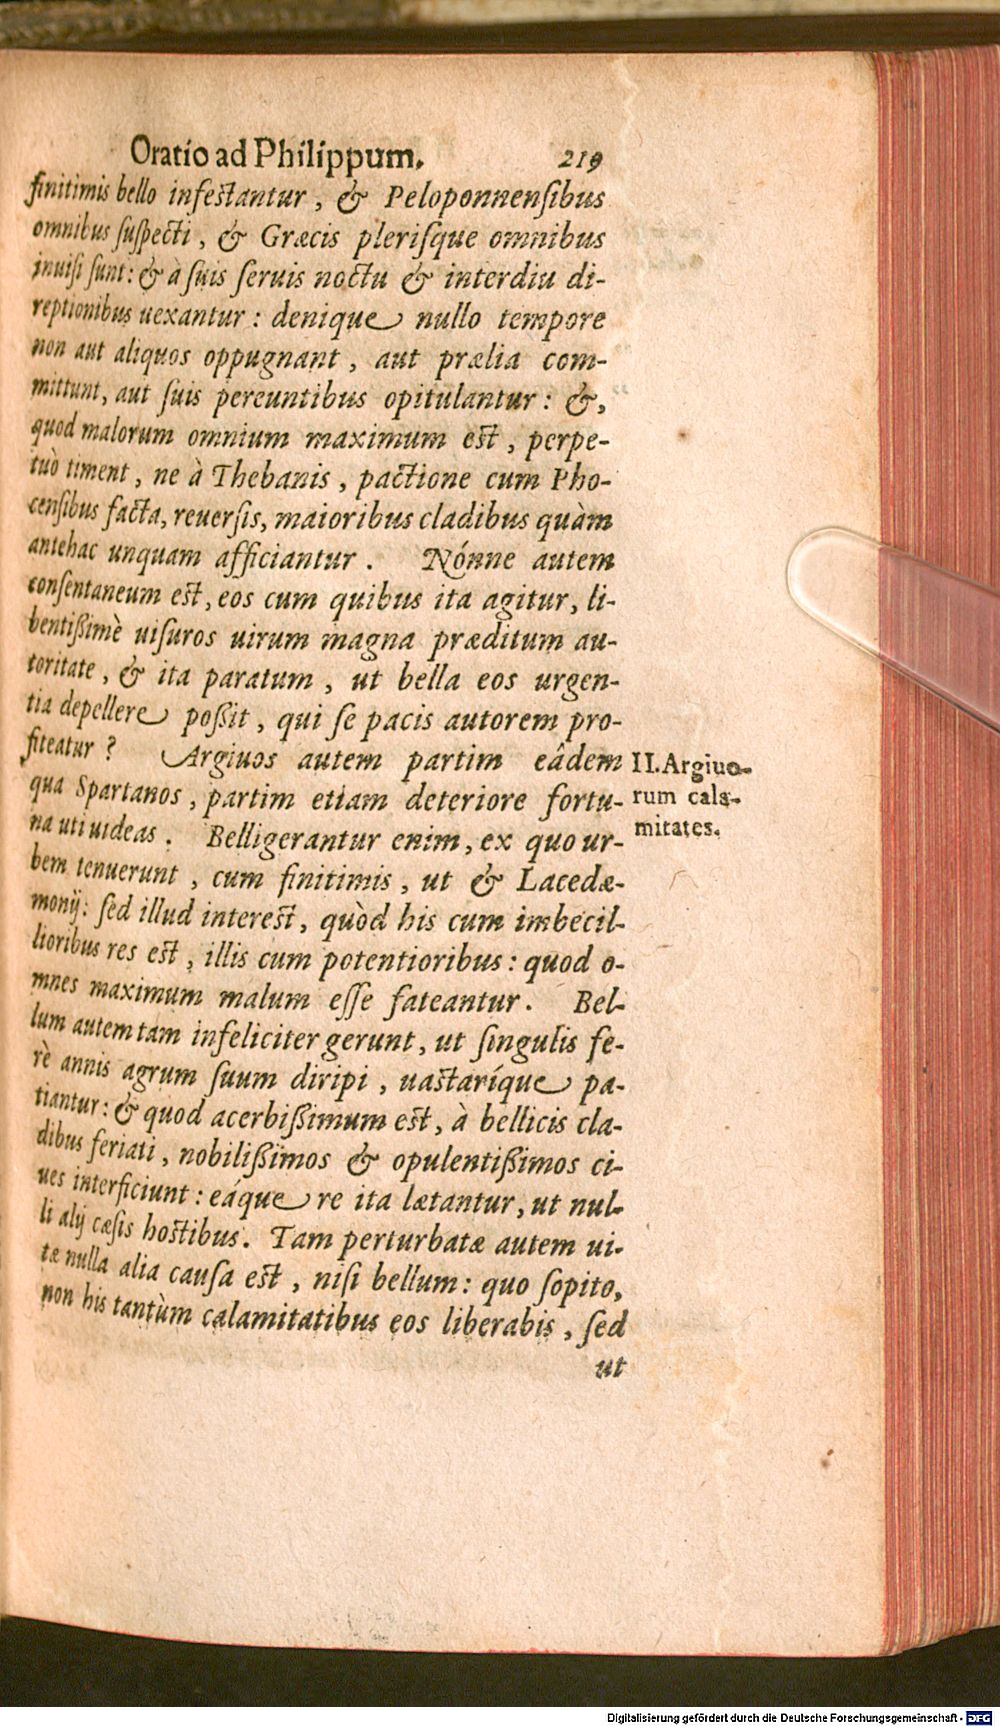 Oratio ad Philippum. 219
finitimis bello infestantur, & Peloponnensibus
omnibus suspecti, & Græcis plerisque omnibus
inuisi sunt: & à suis seruis noctu & interdiu di-
reptionibus uexantur: denique nullo tempore
non aut aliquos oppugnant, aut prælia com-
mittunt, aut suis pereuntibus opitulantur: &,
quod malorum omnium maximum est, perpe-
tuò timent, ne à Thebanis, pactione cum Pho-
censibus facta, reuersis, maioribus cladibus quàm
antehac unquam afficiantur. Nónne autem
consentaneum est, eos cum quibus ita agitur, li-
bentißimè uisuros uirum magna præditum au-
toritate, & ita paratum, ut bella eos urgen-
tia depellere poßit, qui se pacis autorem pro-
fiteatur? Argiuos autem partim eâdem
II. Argiuo-
rum cala-
mitates.
qua Spartanos, partim etiam deteriore fortu-
na uti uideas. Belligerantur enim, ex quo ur-
bem tenuerunt, cum finitimis, ut & Lacedæ-
monij: sed illud interest, quòd his cum imbecil-
lioribus res est, illis cum potentioribus: quod o-
mnes maximum malum esse fateantur. Bel-
lum autem tam infeliciter gerunt, ut singulis fe-
rè annis agrum suum diripi, uastaríque pa-
tiantur: & quod acerbißimum est, à bellicis cla-
dibus feriati, nobilißimos & opulentißimos ci-
ues interficiunt: eáque re ita lætantur, ut nul-
li alij cæsis hostibus. Tam perturbatæ autem ui-
tæ nulla alia causa est, nisi bellum: quo sopito,
non his tantùm calamitatibus eos liberabis, sed
ut
Digitalisierung gefördert durch die Deutsche Forschungsgemeinschaft - DFG